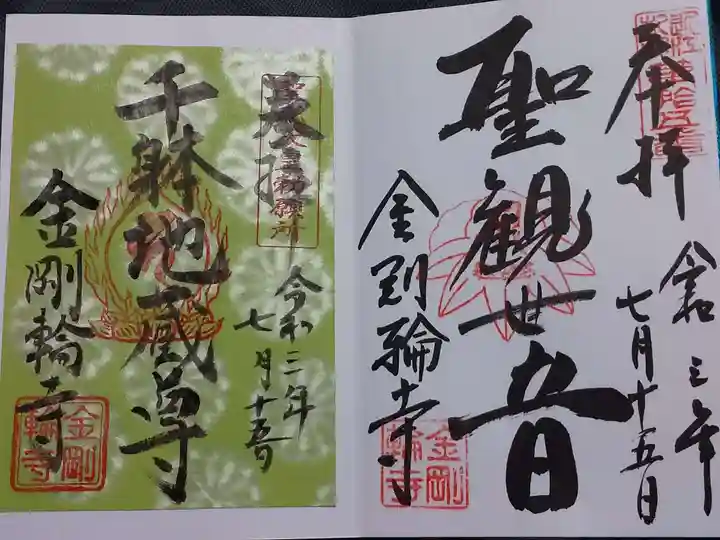 奉拝
令和三年
七月十五日
聖観世音
金剛輪寺
金剛輪寺
奉拝
令和三年
七月十五日
千躰地蔵尊
金剛輪寺
金剛輪寺